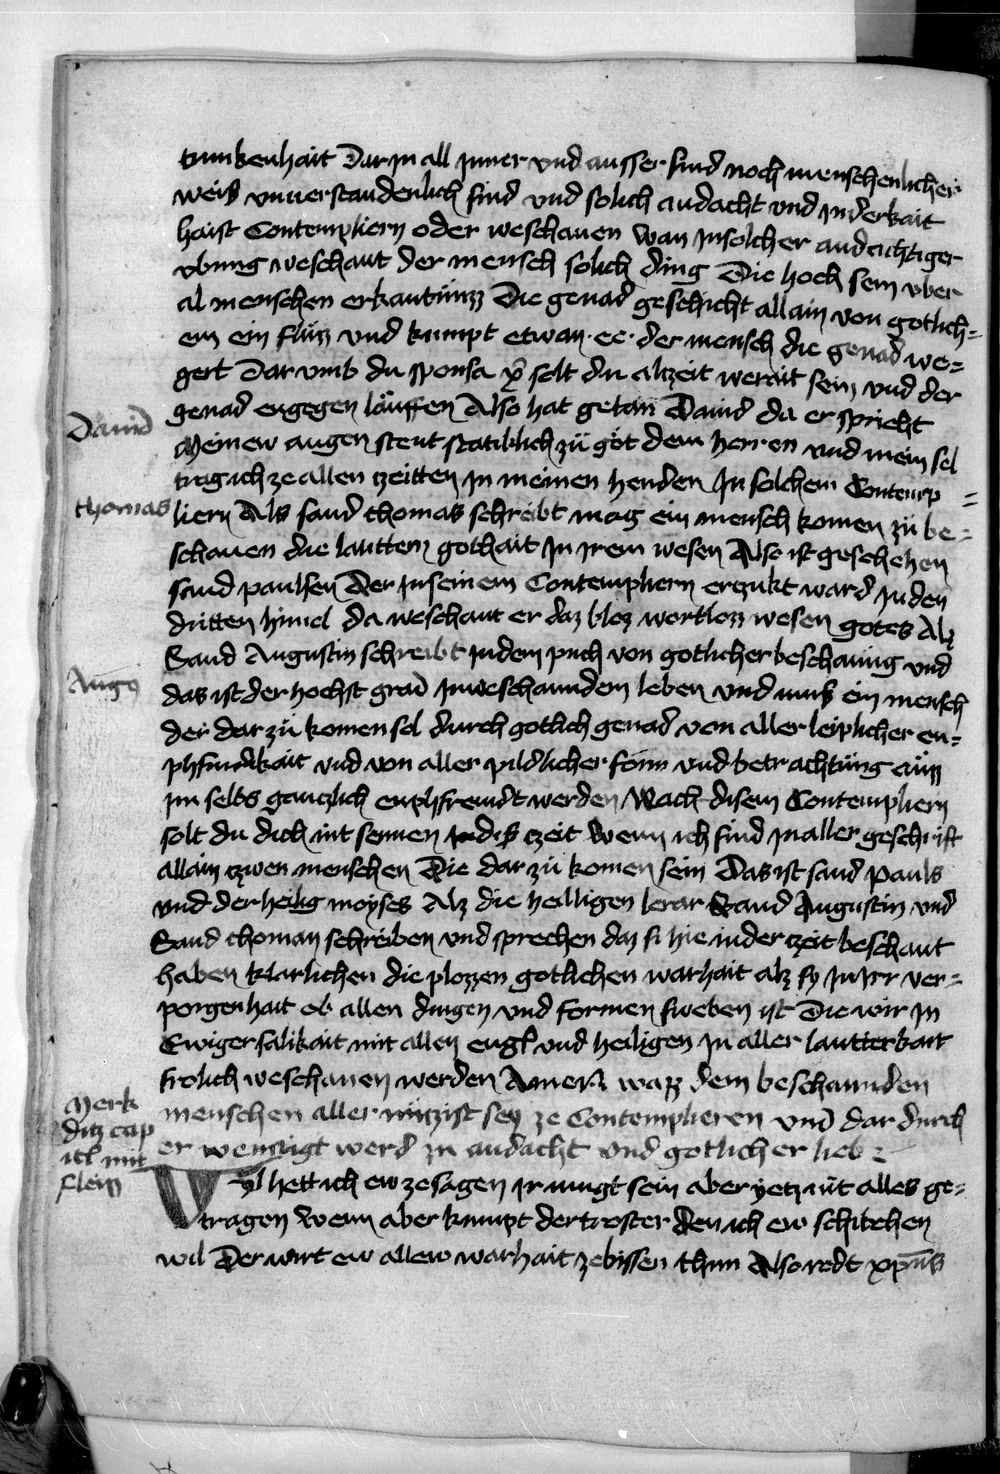 trunkenhait Dar jn all jnner vnd ausser sind noch menschenlicher
weis vnuerstandenlich sind vnd solich andacht vnd jnderkait
haist Contempliern oder weschauen wan jnsolcher andachtiger
vbung weschaut der mensch solich ding Die hoch sein vber
al menschen erkantnüzz Die genad geschicht allain von gotlich=
em ein fluzz vnd kumpt etwan · ee · der mensch die genad we=
gert Dar vmb du sponsa xp̄i solt du alzeit werait sein vnd der
genad engegen läuffen Also hat getan Dauid da er spricht
Dauid
Meinew augen stent statiklich zü göt dem herren vnd mein sel
trag ich ze allen tzeitten in meinen henden In solchem Contemp=
thomas
liern Als sand thomas schreibt mag ein mensch komen zü be=
schauen die lauttern gothait In jrem wesen Also ist geschehen
sand paulsen Der jnseinem Contempliern erzukt ward jn den
dritten himel da weschaut er daz bloz wortlozz wesen gotes Alz
Sand Augustin schreibt jndem puch von gotlicher beschauung vnd
Augꝰ
das ist der hochst grad jnweschaunndem leben vnd mus ein mensch
der dar zü komen sol durch gotlich genad von aller leiplicher en=
phfindikait vnd von aller pildlicher form vnd betrachtüng auzz
im selbs gantzlich enphfremdt werden Nach disem Contempliern
solt du dich nit sennen jndis tzeit Wenn ich find jnaller geschrift
allain tzwen menschen Die dar zü komen sein Das ist sand Pauls
vnd der heilig moyses Alz die heilligen lerar Sand Augustin vnd
Sand thoman schreiben vnd sprechen daz si hie inder tzeit beschaut
haben klarlichen die plozzen gotlichen warhait alz sy jn jrr ver=
porgenhait ob allen dingen vnd formen sweben ist Die wir jn
Ewiger salikait mit allen engl vnd heiligen jn aller lautterkait
frolich weschauen werden Amen wazz dem beschaunnden
Merk
ditz cap
itl mit
fleizz
menschen aller nützist sey ze Contemplieren vnd dar durch
er wenttigt werd zu andacht vnd gotlicher lieb
Vyl hett ich ew zesagen jr mugt sein aber yetz nit alles ge=
tragen Wenn aber kumpt der troster den ich ew schikchen
wil Der wirt ew allew warhait zebissen thun Also redt xp̄us